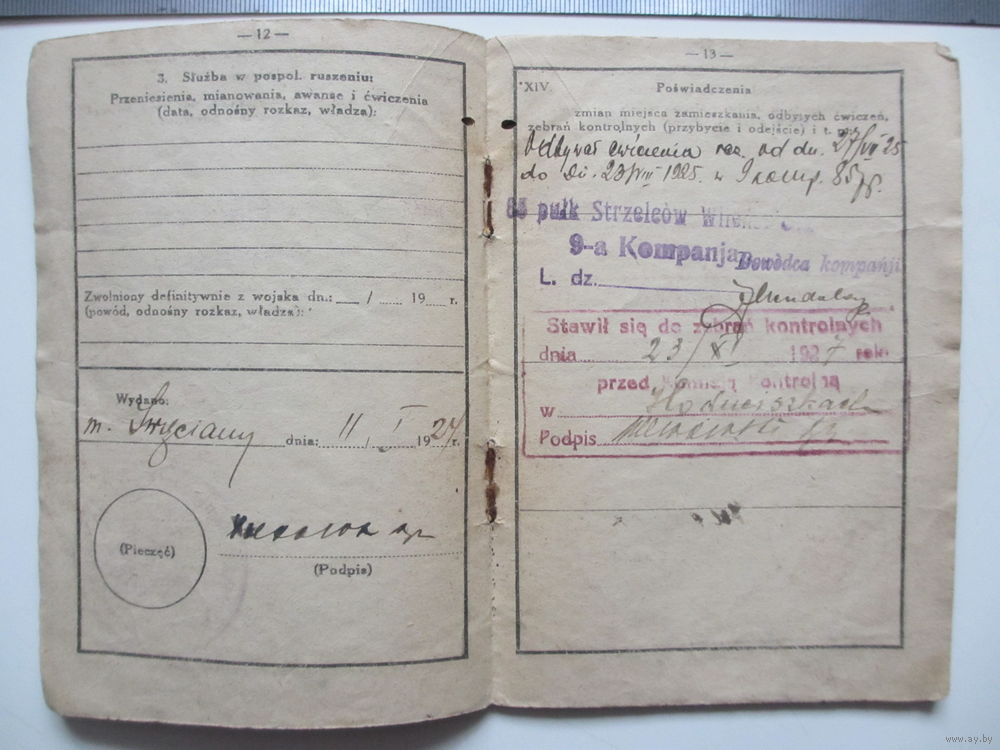 —12—
3. Służba w pospol. ruszeniu:
Przeniesienia, mianowania, awanse i ćwiczenia
(data, odnośny rozkaz, władza):
Zwolniony definitywnie z wojska dn.: / 19 r.
(powód, odnośny rozkaz, władza):
Wydano:
m. Święciany dnia: 11 / I 1924 r.
(Pieczęć)
(Podpis)
—13—
XIV. Poświadczenia
zmian miejsca zamieszkania, odbytych ćwiczeń,
zebrań kontrolnych (przybycie i odejście) i t. p.:
Odbywał ćwiczenia rez. od dn. 27/VII 25
do dn. 23/VIII 1925. w 9 komp. 85 pp.
85 pułk Strzelców
9-a Kompanja
Dowódca kompanji
L. dz.
Stawił się do zebrań kontrolnych
dnia 23/XI 1927 rok.
przed Komisją Kontrolną
w Hoduciszkach
Podpis
www.ay.by